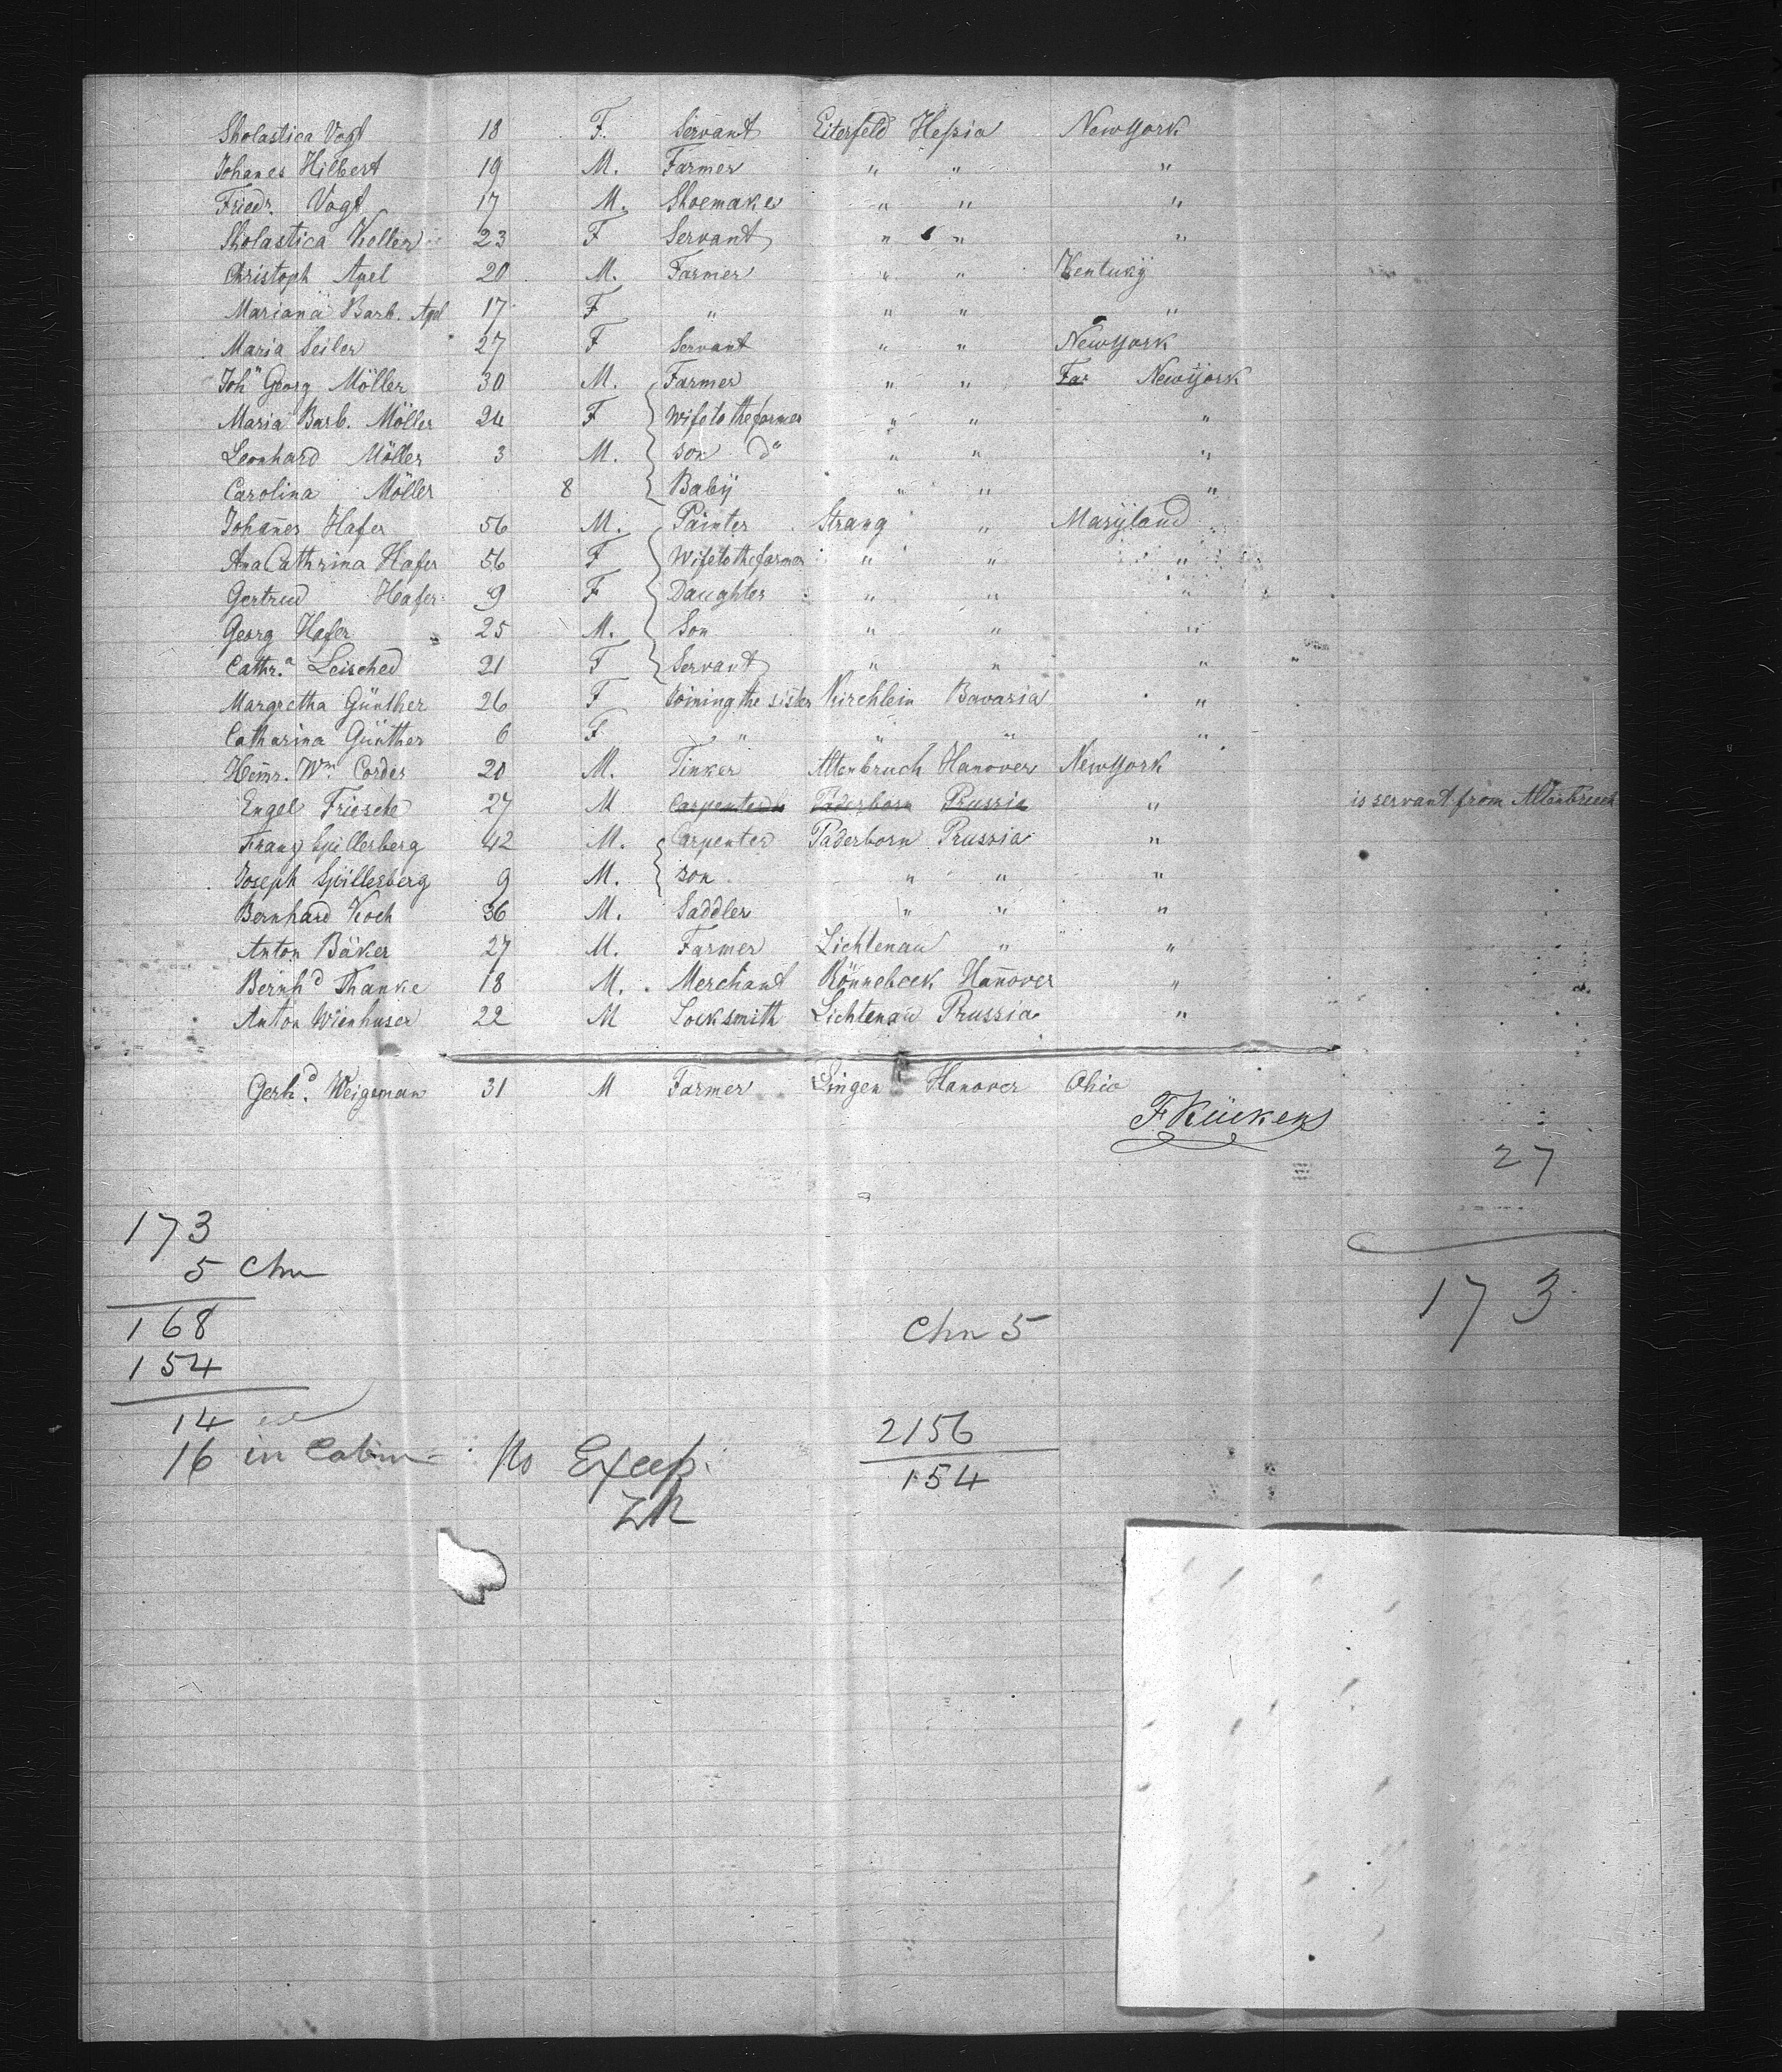 Sholastica Vogt 18 F. Servant Eiterfeld Heſsia NewYork
Johanes Hilbert 19 M. Farmer " " "
Friedr. Vogt 17 M. Shoemaker " " "
Sholastica Koller 23 F Servant " " "
Christoph Apel 20 M. Farmer " " Kentuky
Mariana Barb. Apel 17 F " " " "
Maria Seiler 27 F Servant " " NewYork
John Georg Möller 30 M. Farmer " " Far NewYork
Maria Barb. Möller 24 F Wife to the former " " "
Leonhard Möller 3 M. son do " " "
Carolina Möller 8 Baby " " "
Johañes Hafer 56 M. Painter Strang " Maryland
Ana Cathrina Hafer 56 F Wife to the former " " "
Gertrud Hafer 9 F Daughter " " "
Georg Hafer 25 M. Son " " "
Cathr.a Leisched 21 F Servant " " "
Margretha Günther 26 F Joining the sister Kirchlein Bavaria "
Catharina Günther 6 F " " " "
Heinr. Wm. Cordes 20 M. Tinker Altenbruch Hanover NewYork
Engel Friesche 27 M Carpenter Paderborn Prussia " is servant from Altenbruch
Franz Spillerberg 42 M. Carpenter Paderborn Prussia "
Joseph Spillerberg 9 M. son " " "
Bernhard Koch 36 M. Saddler " " "
Anton Bäker 27 M. Farmer Lichtenau " "
Bernhd Thanke 18 M. Merchant Rönnebeck Hañover "
Anton Wienhuser 22 M Locksmith Lichtenau Prussia "
Gerhd. Weigeman 31 M Farmer Lingen Hanover Ohio
F Rückens
27
173
5 Chn
168
154
14
16 in Cabin
No Excep.
ZR
Chn 5
2156
154
173